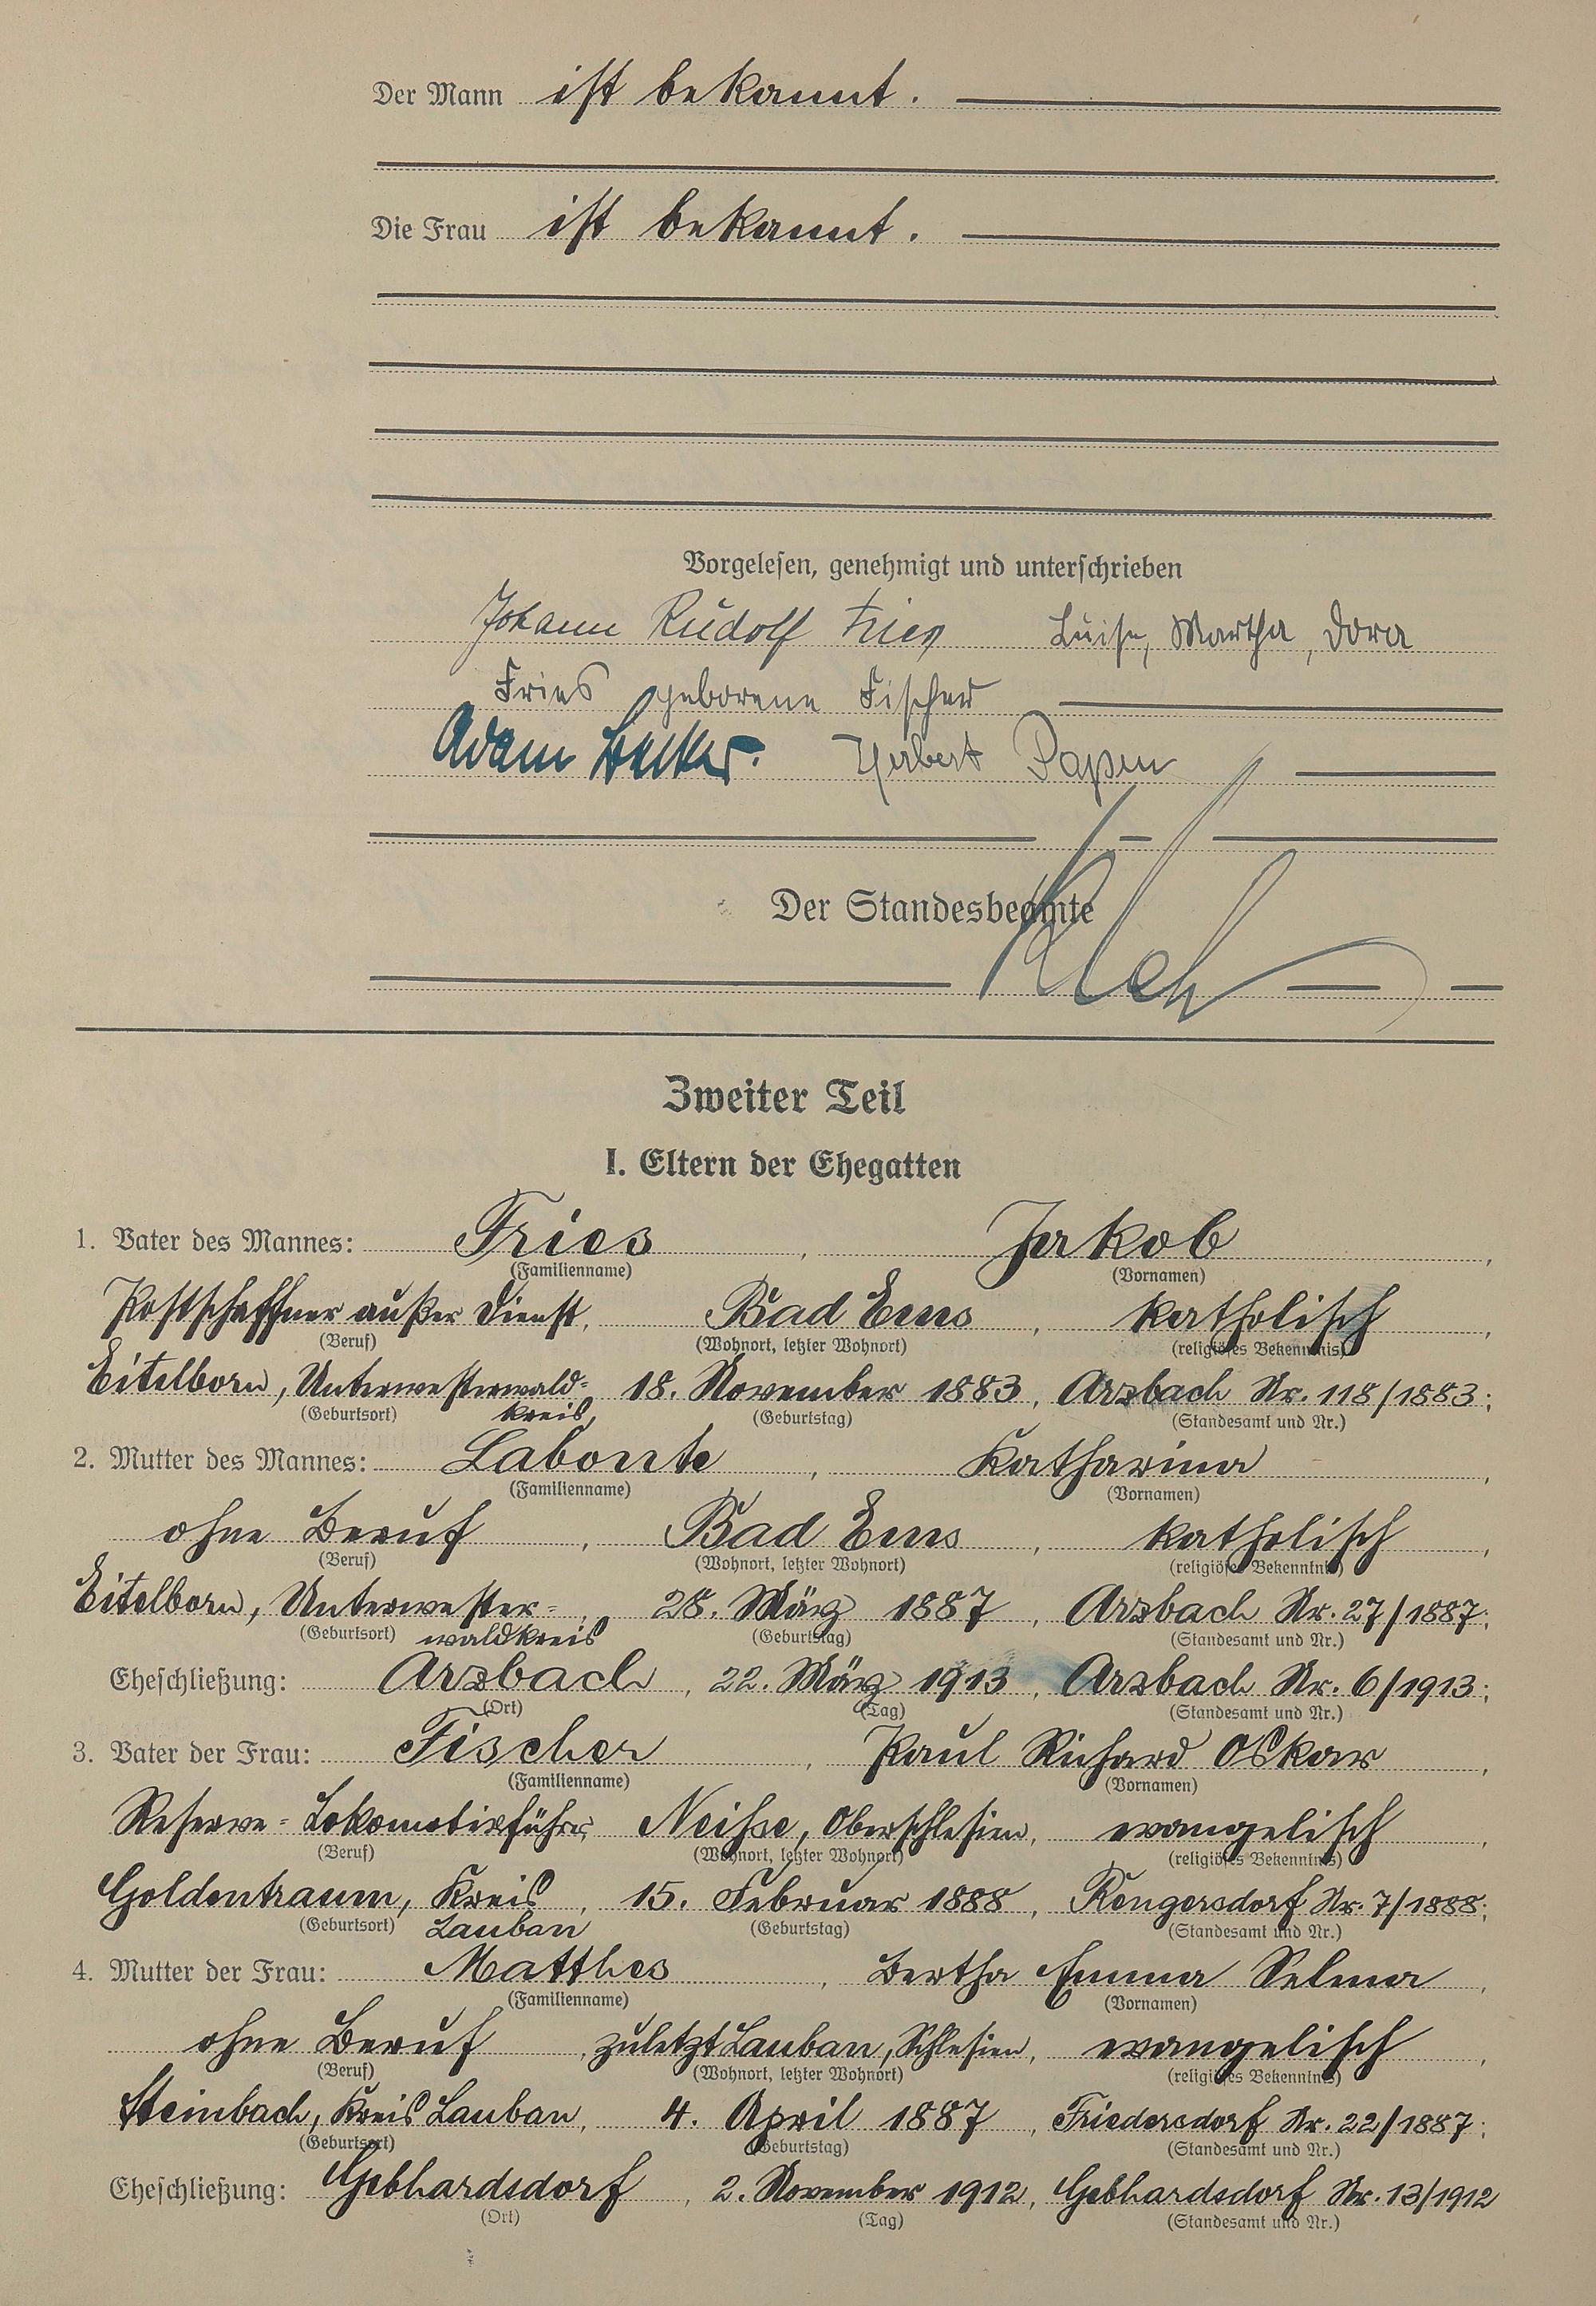 Der Mann ist bekannt.
Die Frau ist bekannt.
Vorgelesen, genehmigt und unterschrieben
Johann Rudolf Fries Luise, Martha, Dora
Fries geborene Fischer
Adam Herbert Papen
Der Standesbeamte
Zweiter Teil
I. Eltern der Ehegatten
1. Vater des Mannes: Fries, Jakob,
(Familienname) (Vornamen)
Postschaffner außer Dienst, Bad Ems, katholisch,
(Beruf) (Wohnort, letzter Wohnort) (religiöses Bekenntnis)
Eitelborn, Unterwesterwald= 18. November 1883, Arzbach Nr. 118/1883;
(Geburtsort) kreis, (Geburtstag) (Standesamt und Nr.)
2. Mutter des Mannes: Labonte, Katharina,
(Familienname) (Vornamen)
ohne Beruf, Bad Ems, katholisch,
(Beruf) (Wohnort, letzter Wohnort) (religiöses Bekenntnis)
Eitelborn, Unterwester=, 28. März 1887, Arzbach Nr. 27/1887;
(Geburtsort) waldkreis (Geburtstag) (Standesamt und Nr.)
Eheschließung: Arzbach, 22. März 1913, Arzbach Nr. 6/1913;
(Ort) (Tag) (Standesamt und Nr.)
3. Vater der Frau: Fischer, Paul Richard Oskar,
(Familienname) (Vornamen)
Reserve=Lokomotivführer, Neisse, Oberschlesien, evangelisch,
(Beruf) (Wohnort, letzter Wohnort) (religiöses Bekenntnis)
Goldentraum, Kreis, 15. Februar 1888, Rengersdorf Nr. 7/1888;
(Geburtsort) Lauban (Geburtstag) (Standesamt und Nr.)
4. Mutter der Frau: Matthes, Bertha Emma Selma,
(Familienname) (Vornamen)
ohne Beruf, zuletzt Lauban, Schlesien, evangelisch,
(Beruf) (Wohnort, letzter Wohnort) (religiöses Bekenntnis)
Steinbach, Kreis Lauban, 4. April 1887, Friedersdorf Nr. 22/1887;
(Geburtsort) (Geburtstag) (Standesamt und Nr.)
Eheschließung: Gebhardsdorf, 2. November 1912, Gebhardsdorf Nr. 13/1912
(Ort) (Tag) (Standesamt und Nr.)